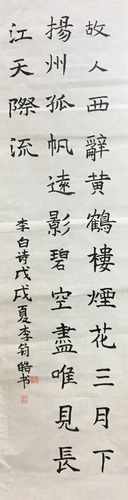 故人西辭黄鶴樓煙花三月下
揚州孤帆遠影碧空盡唯見長
江天際流
李白诗戊戌夏李筠皓书